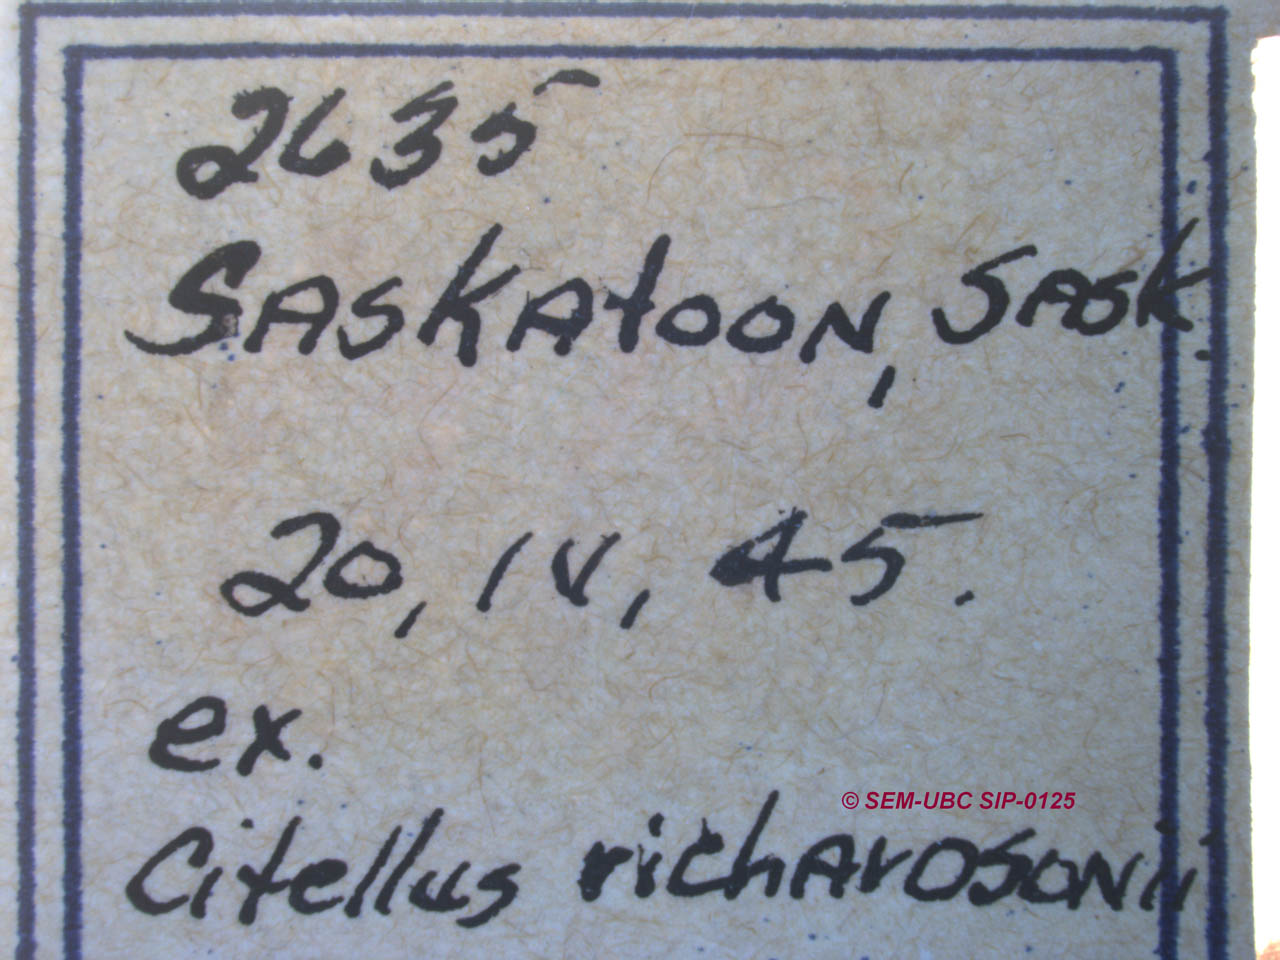 2635
Saskatoon, Sask.
20, IV, 45.
ex.
© SEM-UBC SIP-0125
Citellus richardsonii